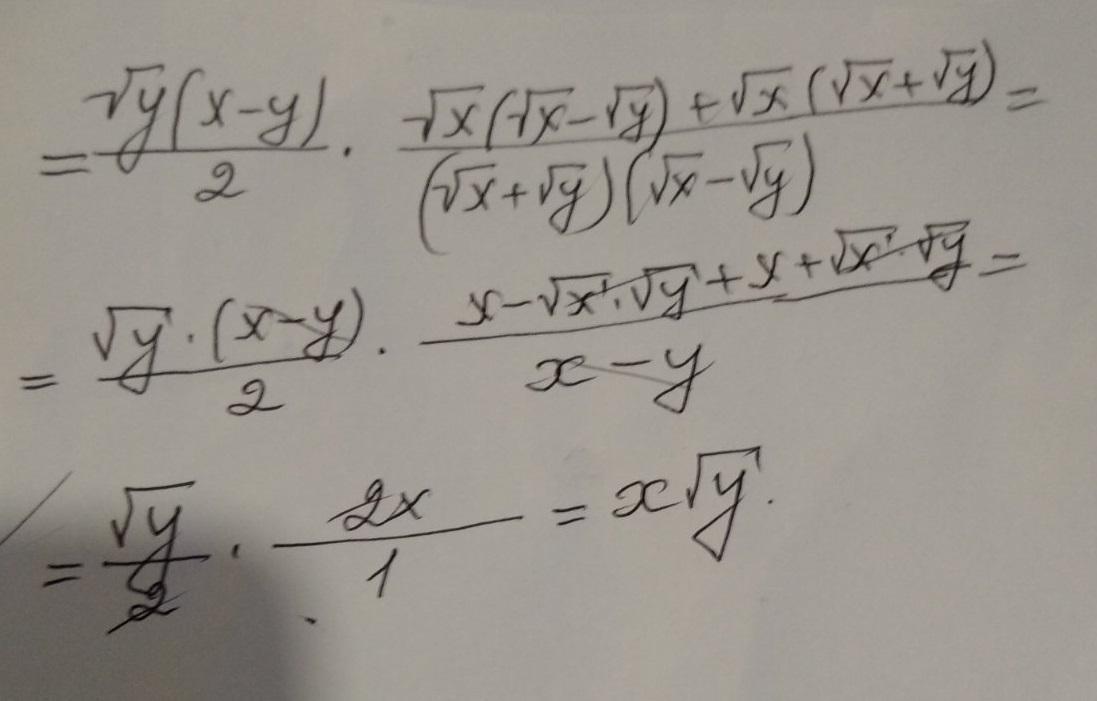 = √y(x-y)/2 · (√x(√x-√y)+√x(√x+√y))/((√x+√y)(√x-√y)) =
= √y·(x-y)/2 · (x-√x·√y+x+√x·√y)/(x-y) =
= √y/2 · 2x/1 = x√y.